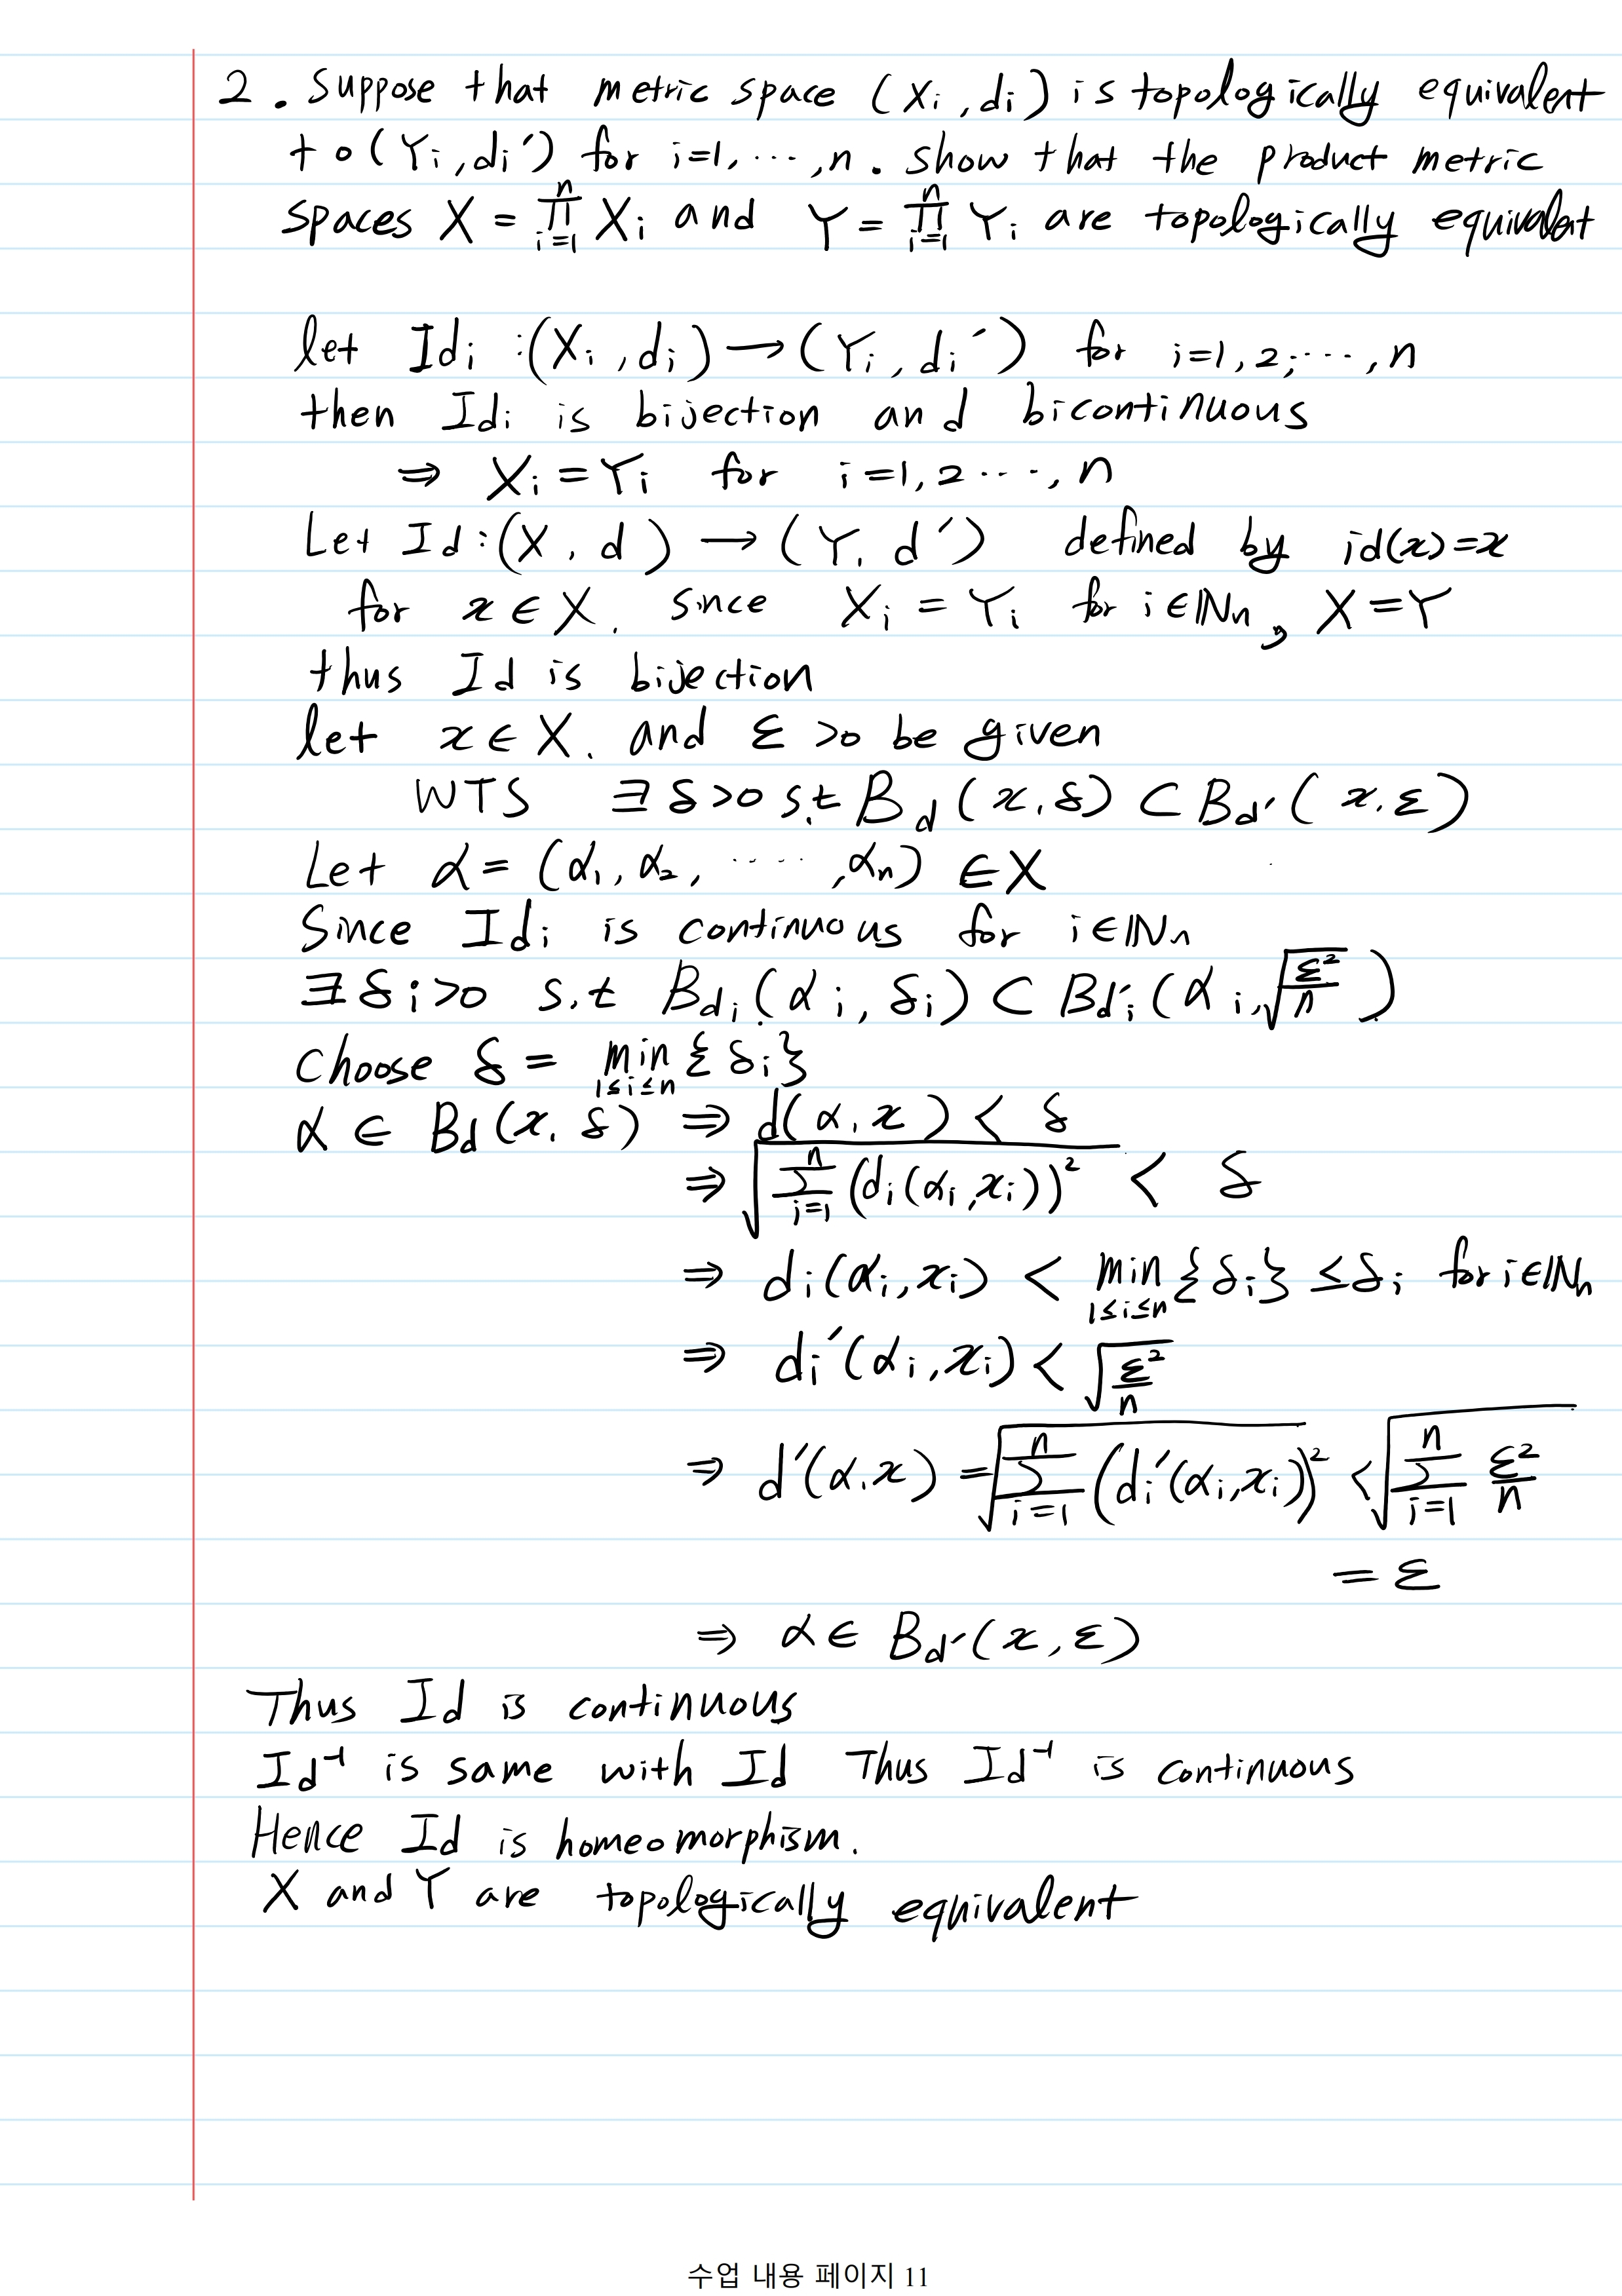 2. Suppose that metric space (Xi, di) is topologically equivalent
to (Yi, di') for i=1, ..., n. show that the product metric
spaces X = ∏_{i=1}^{n} Xi and Y = ∏_{i=1}^{n} Yi are topologically equivalent
let Idi : (Xi, di) → (Yi, di') for i=1, 2, ..., n
then Idi is bijection and bicontinuous
⇒ Xi = Yi for i=1, 2 ..., n
Let Id : (X, d) → (Y, d') defined by id(x)=x
for x ∈ X. since Xi = Yi for i∈ℕn, X=Y
thus Id is bijection
let x ∈ X. and ε >0 be given
WTS ∃ δ>0 s.t B_d (x, δ) ⊂ B_d' (x, ε)
Let α = (α1, α2, ....., αn) ∈ X
Since Idi is continuous for i∈ℕn
∃ δi>0 s.t B_di (αi, δi) ⊂ B_d'i (αi, √(ε²/n))
choose δ = min_{1≤i≤n} {δi}
α ∈ B_d (x, δ) ⇒ d(α, x) < δ
⇒ √(∑_{i=1}^{n} (di(αi, xi))²) < δ
⇒ di(αi, xi) < min_{1≤i≤n} {δi} ≤ δi for i∈ℕn
⇒ di'(αi, xi) < √(ε²/n)
⇒ d'(α, x) = √(∑_{i=1}^{n} (di'(αi, xi))²) < √(∑_{i=1}^{n} ε²/n)
= ε
⇒ α ∈ B_d' (x, ε)
Thus Id is continuous
Id⁻¹ is same with Id Thus Id⁻¹ is continuous
Hence Id is homeomorphism.
X and Y are topologically equivalent
수업 내용 페이지 11